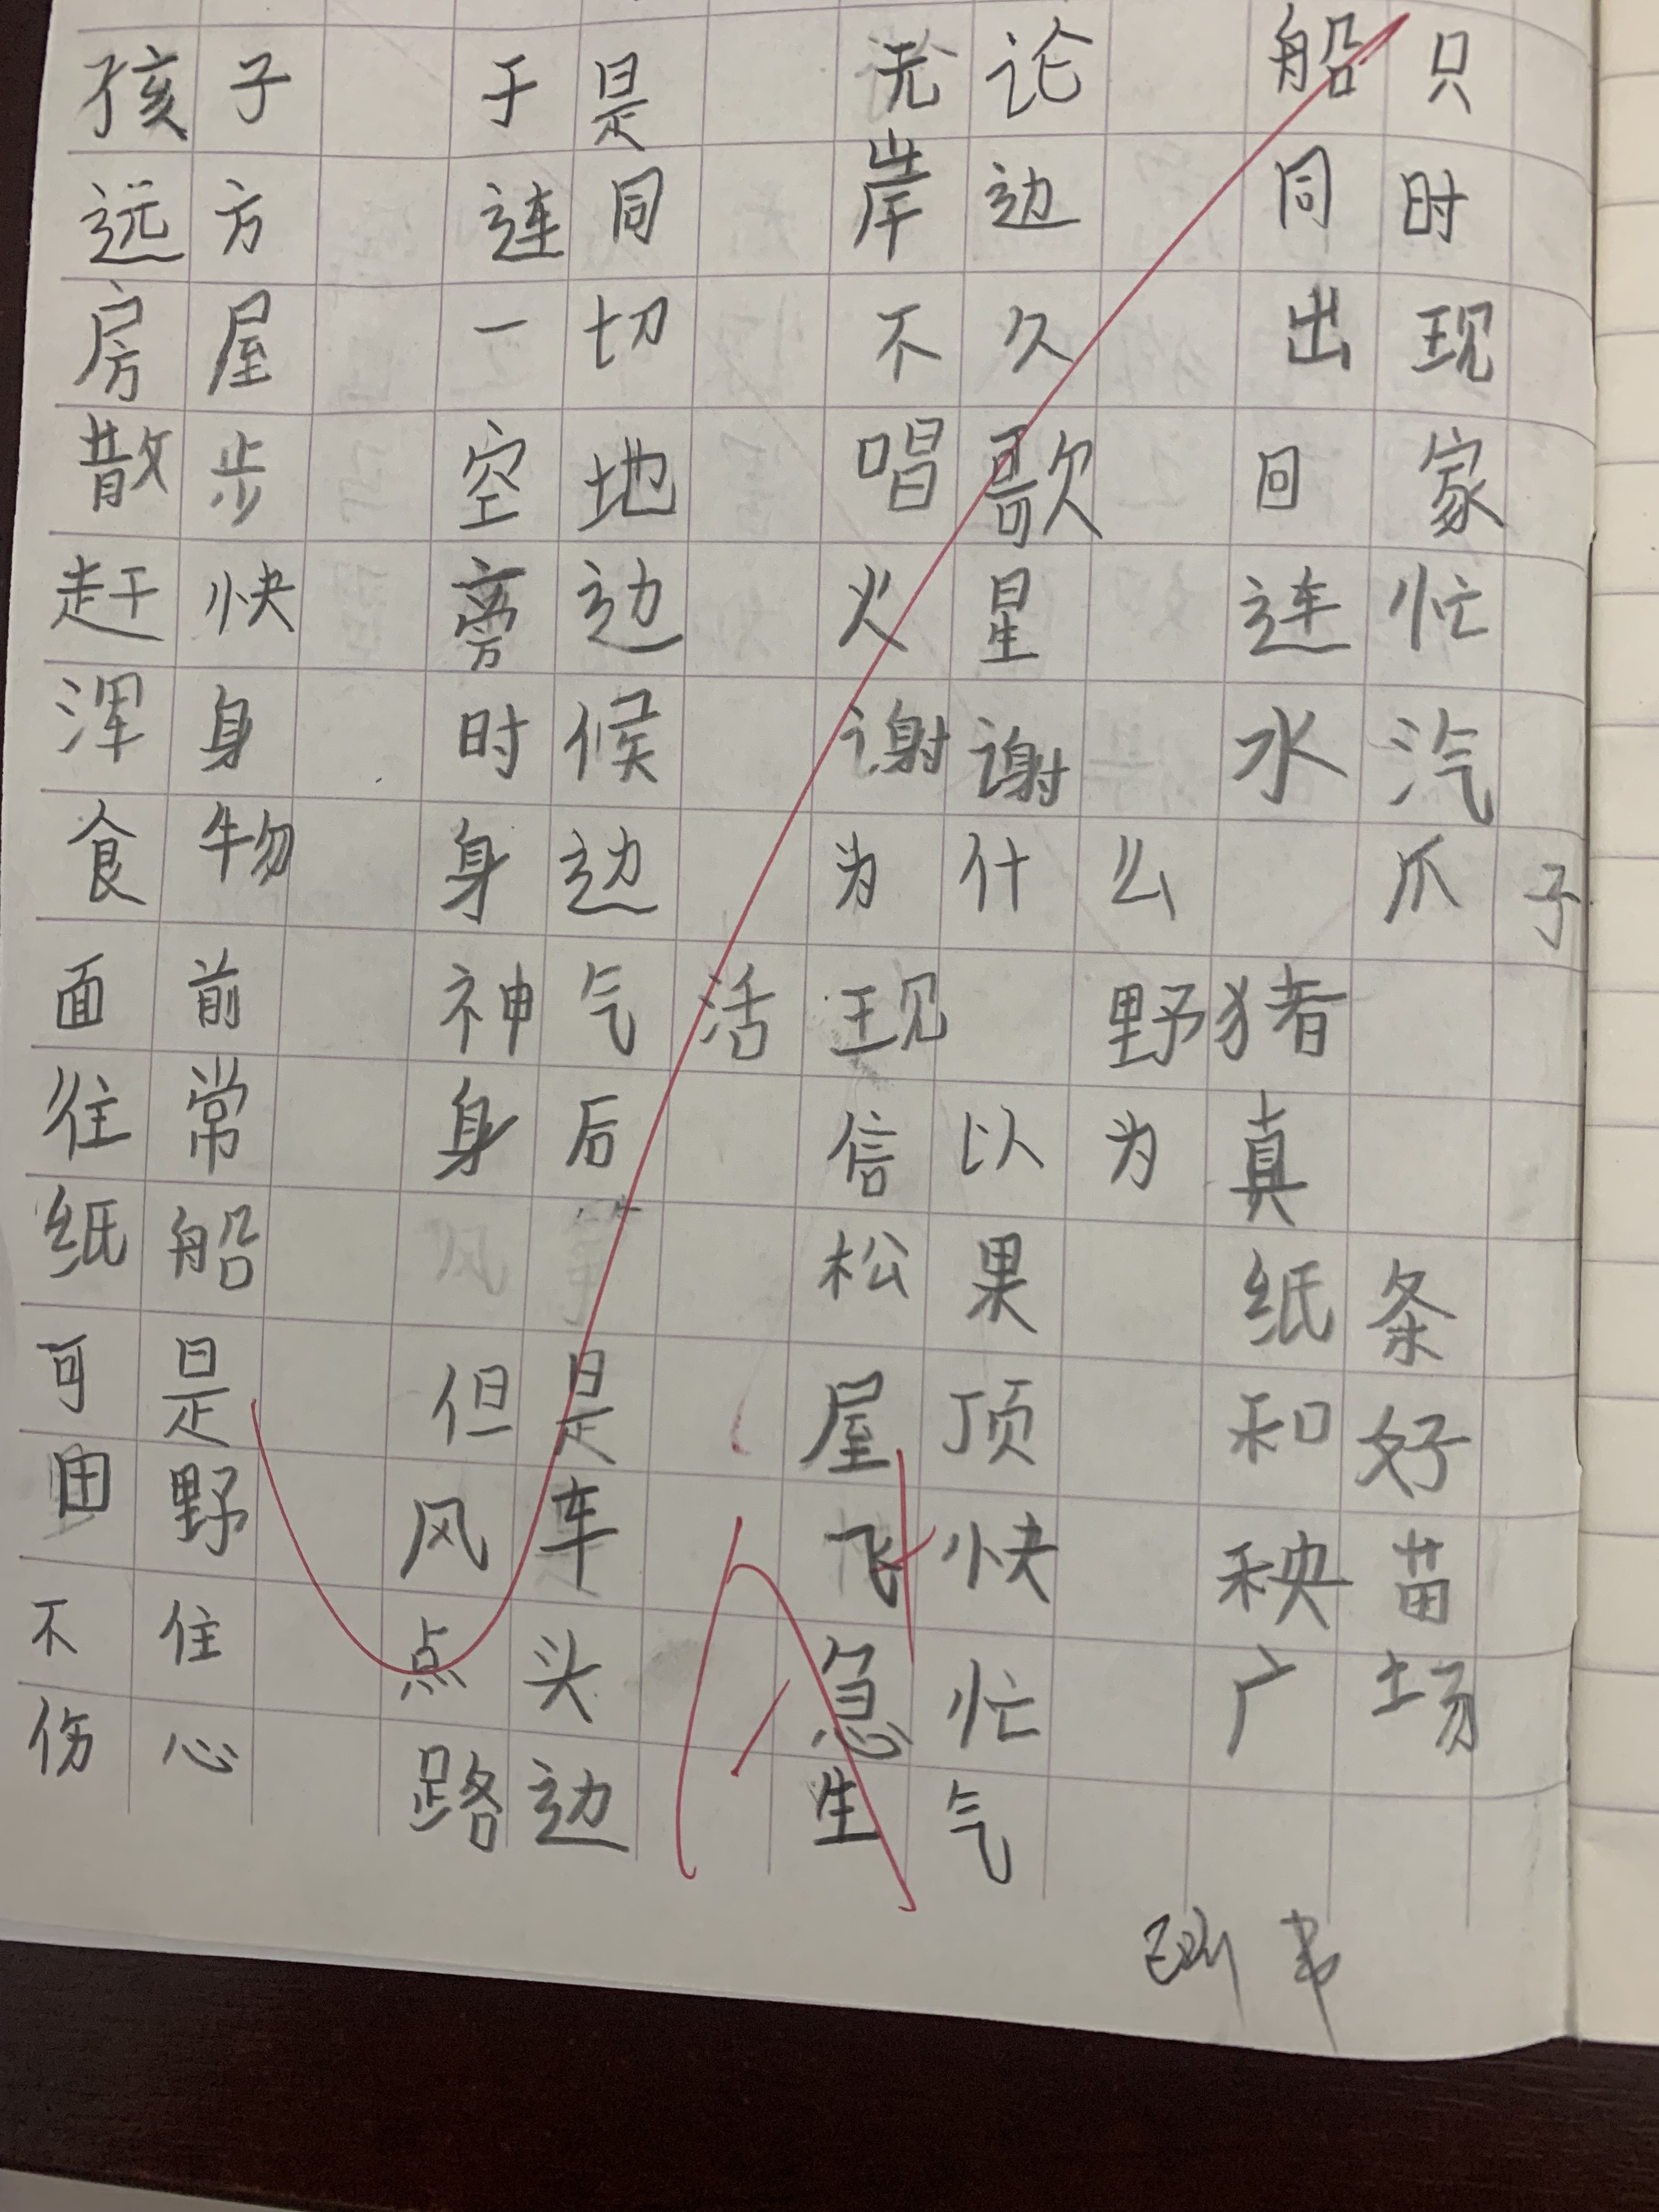 孩子 于是 无论 船只
远方 连同 岸边 同时
房屋 一切 不久 出现
散步 空地 唱歌 回家
赶快 旁边 火星 连忙
浑身 时候 谢谢 水汽
食物 身边 为什么 爪子
面前 神气活现 野猪
往常 身后 信以为真
纸船 松果 纸条
可是 但是 屋顶 和好
田野 风车 飞快 秧苗
不住 点头 急忙 广场
伤心 路边 生气